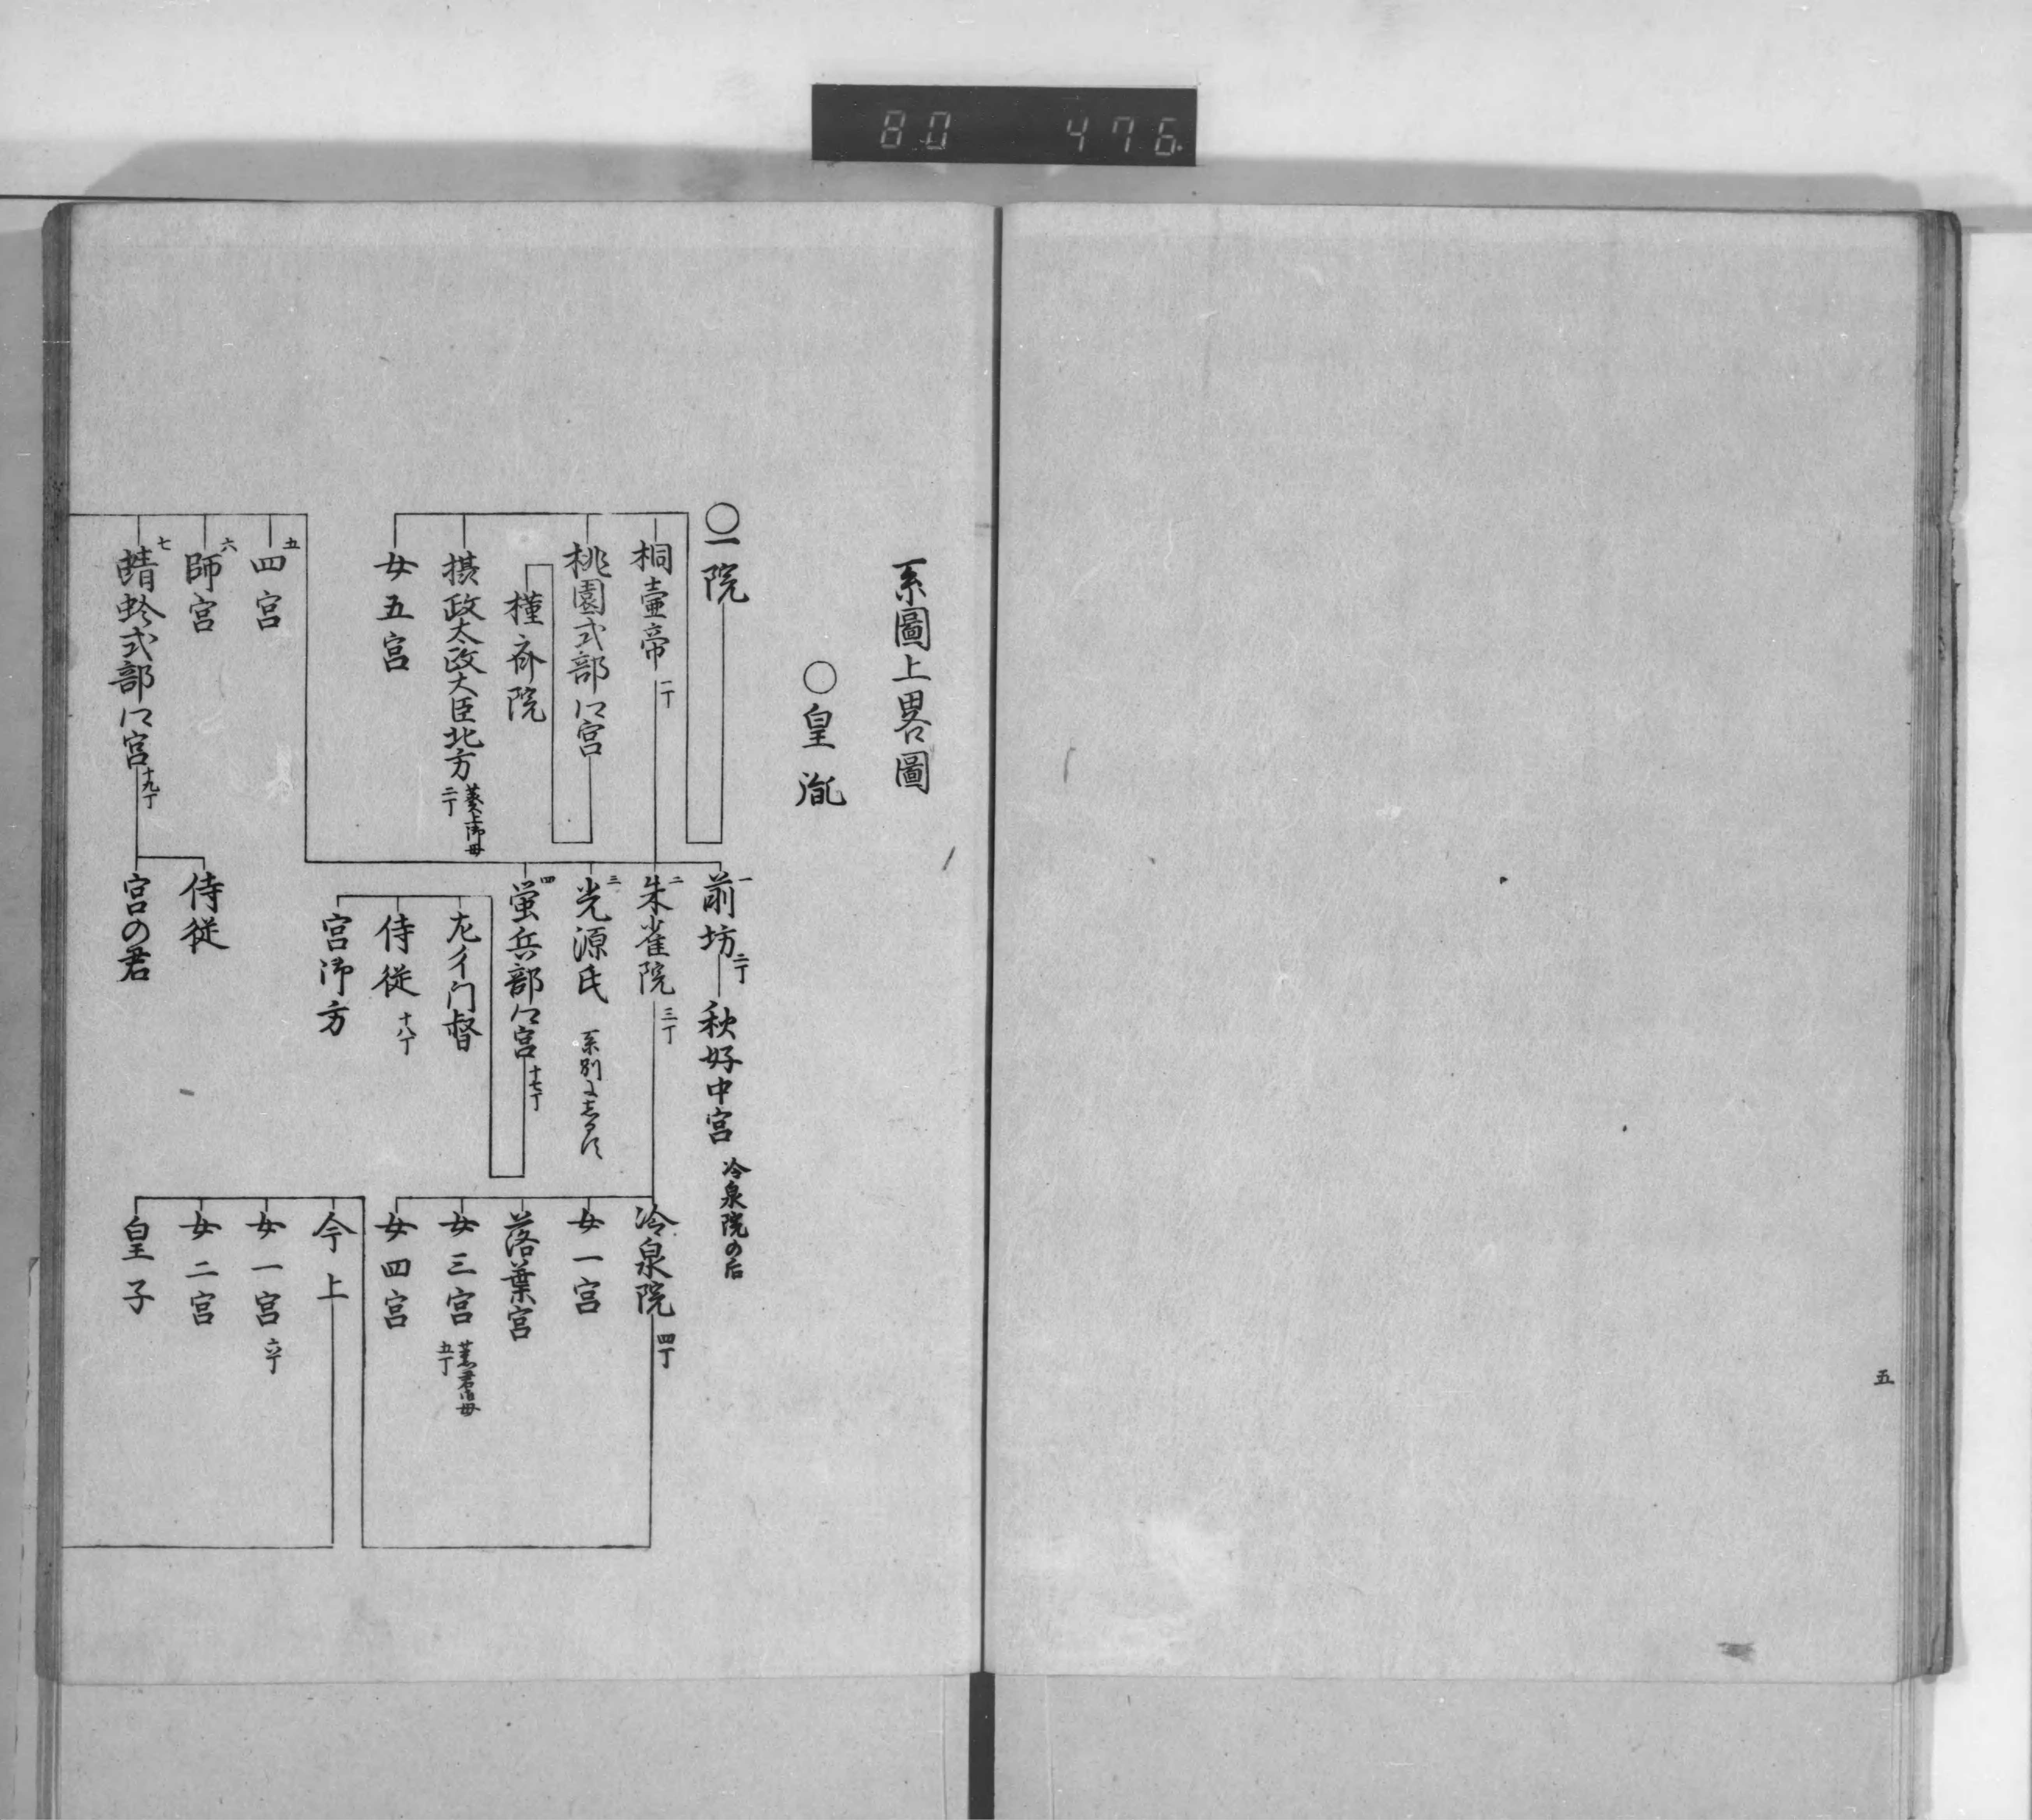 80 476
五
系圖上畧圖
〇皇胤
〇一院
桐壷帝 一丁
桃園式部口宮
槿斎院
摂政太政大臣北方 葵上御母 二丁
女五宮
一 前坊 二丁
秋好中宮 冷泉院の后
二 朱雀院 三丁
三 光源氏
四 蛍兵部口宮 十七丁
左イ门督
侍従 十八丁
宮御方
五 四宮
六 帥宮
七 蜻蛉式部口宮 十九丁
侍従
宮の君
冷泉院 四丁
女一宮
落葉宮
女三宮 薫君御母 五丁
女四宮
今上
女一宮 六丁
女二宮
皇子